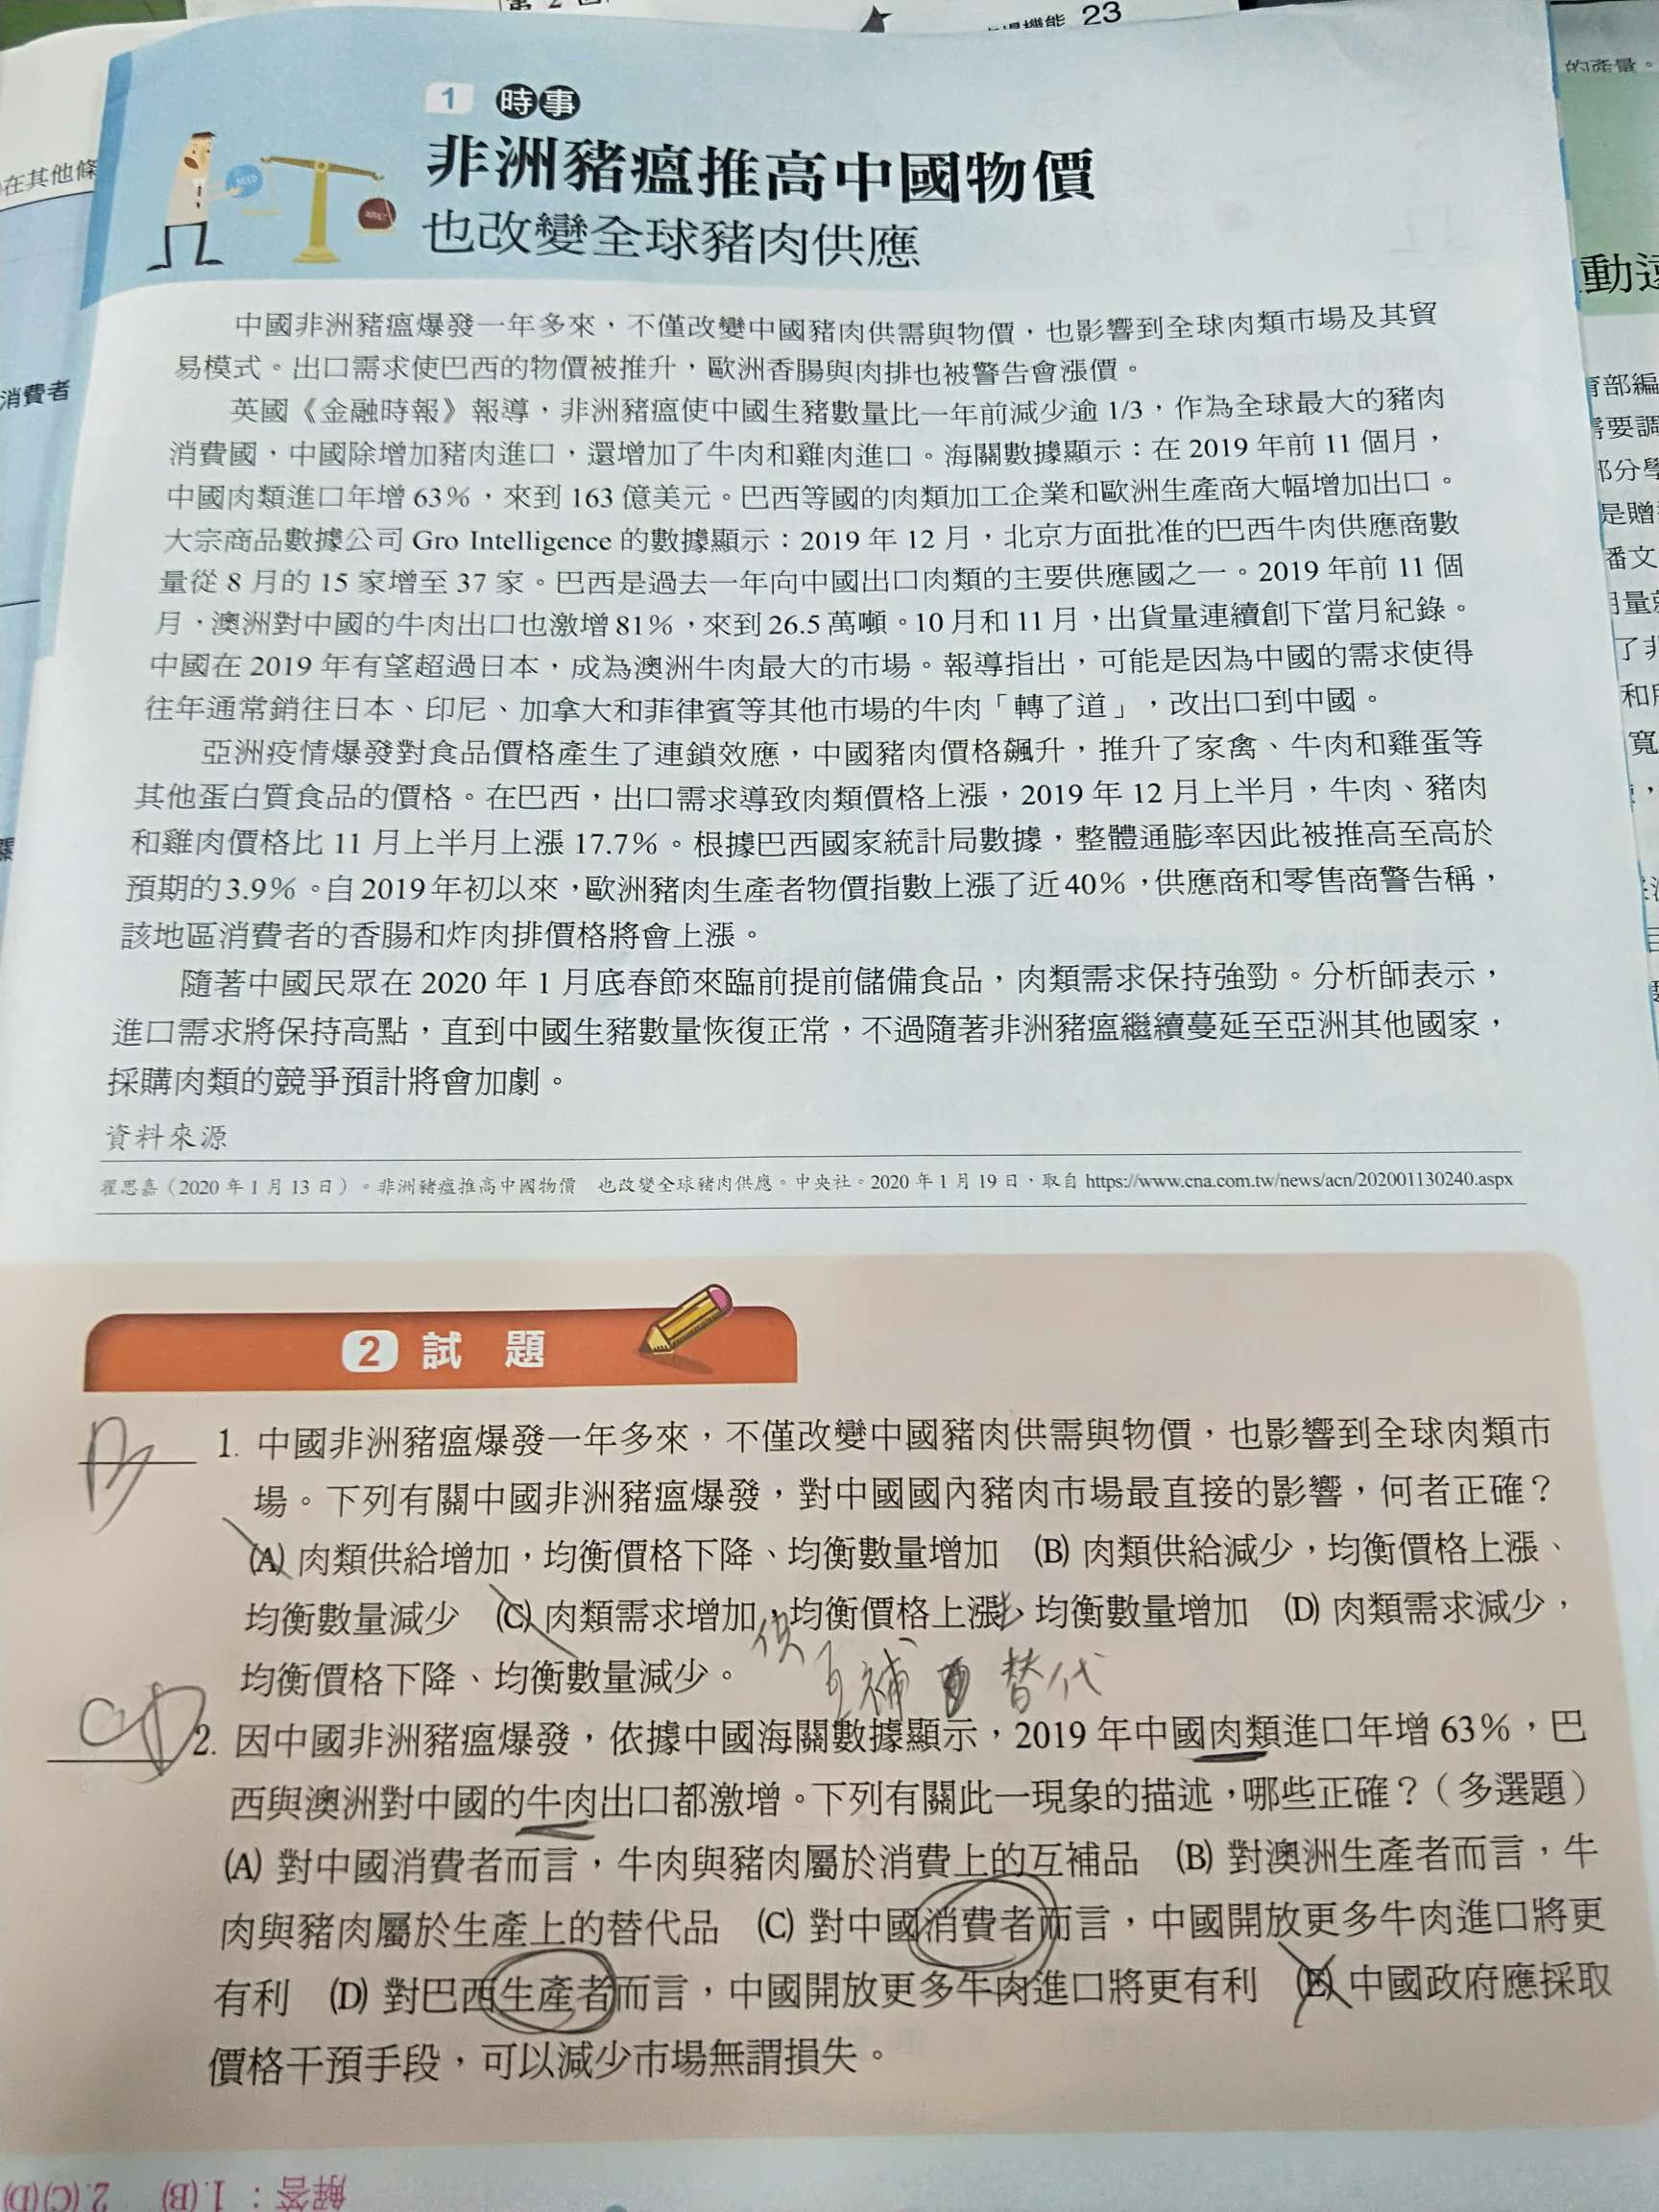 第 2 回
市場機能 23
的產量。
1 時事
在其他條
非洲豬瘟推高中國物價
也改變全球豬肉供應
消費者
中國非洲豬瘟爆發一年多來，不僅改變中國豬肉供需與物價，也影響到全球肉類市場及其貿
易模式。出口需求使巴西的物價被推升，歐洲香腸與肉排也被警告會漲價。
英國《金融時報》報導，非洲豬瘟使中國生豬數量比一年前減少逾 1/3，作為全球最大的豬肉
消費國，中國除增加豬肉進口，還增加了牛肉和雞肉進口。海關數據顯示：在 2019 年前 11 個月，
中國肉類進口年增 63%，來到 163 億美元。巴西等國的肉類加工企業和歐洲生產商大幅增加出口。
大宗商品數據公司 Gro Intelligence 的數據顯示：2019 年 12 月，北京方面批准的巴西牛肉供應商數
量從 8 月的 15 家增至 37 家。巴西是過去一年向中國出口肉類的主要供應國之一。2019 年前 11 個
月，澳洲對中國的牛肉出口也激增 81%，來到 26.5 萬噸。10 月和 11 月，出貨量連續創下當月紀錄。
中國在 2019 年有望超過日本，成為澳洲牛肉最大的市場。報導指出，可能是因為中國的需求使得
往年通常銷往日本、印尼、加拿大和菲律賓等其他市場的牛肉「轉了道」，改出口到中國。
亞洲疫情爆發對食品價格產生了連鎖效應，中國豬肉價格飆升，推升了家禽、牛肉和雞蛋等
其他蛋白質食品的價格。在巴西，出口需求導致肉類價格上漲，2019 年 12 月上半月，牛肉、豬肉
和雞肉價格比 11 月上半月上漲 17.7%。根據巴西國家統計局數據，整體通膨率因此被推高至高於
預期的 3.9%。自 2019 年初以來，歐洲豬肉生產者物價指數上漲了近 40%，供應商和零售商警告稱，
該地區消費者的香腸和炸肉排價格將會上漲。
隨著中國民眾在 2020 年 1 月底春節來臨前提前儲備食品，肉類需求保持強勁。分析師表示，
進口需求將保持高點，直到中國生豬數量恢復正常，不過隨著非洲豬瘟繼續蔓延至亞洲其他國家，
採購肉類的競爭預計將會加劇。
資料來源
翟思嘉（2020 年 1 月 13 日）。非洲豬瘟推高中國物價 也改變全球豬肉供應。中央社。2020 年 1 月 19 日，取自 https://www.cna.com.tw/news/acn/202001130240.aspx
2 試題
B 1. 中國非洲豬瘟爆發一年多來，不僅改變中國豬肉供需與物價，也影響到全球肉類市
場。下列有關中國非洲豬瘟爆發，對中國國內豬肉市場最直接的影響，何者正確？
(A) 肉類供給增加，均衡價格下降、均衡數量增加 (B) 肉類供給減少，均衡價格上漲、
均衡數量減少 (C) 肉類需求增加，均衡價格上漲、均衡數量增加 (D) 肉類需求減少，
均衡價格下降、均衡數量減少。
供 互補 替代
CD 2. 因中國非洲豬瘟爆發，依據中國海關數據顯示，2019 年中國肉類進口年增 63%，巴
西與澳洲對中國的牛肉出口都激增。下列有關此一現象的描述，哪些正確？（多選題）
(A) 對中國消費者而言，牛肉與豬肉屬於消費上的互補品 (B) 對澳洲生產者而言，牛
肉與豬肉屬於生產上的替代品 (C) 對中國消費者而言，中國開放更多牛肉進口將更
有利 (D) 對巴西生產者而言，中國開放更多牛肉進口將更有利 (E) 中國政府應採取
價格干預手段，可以減少市場無謂損失。
解答：1.(B) 2.(C)(D)